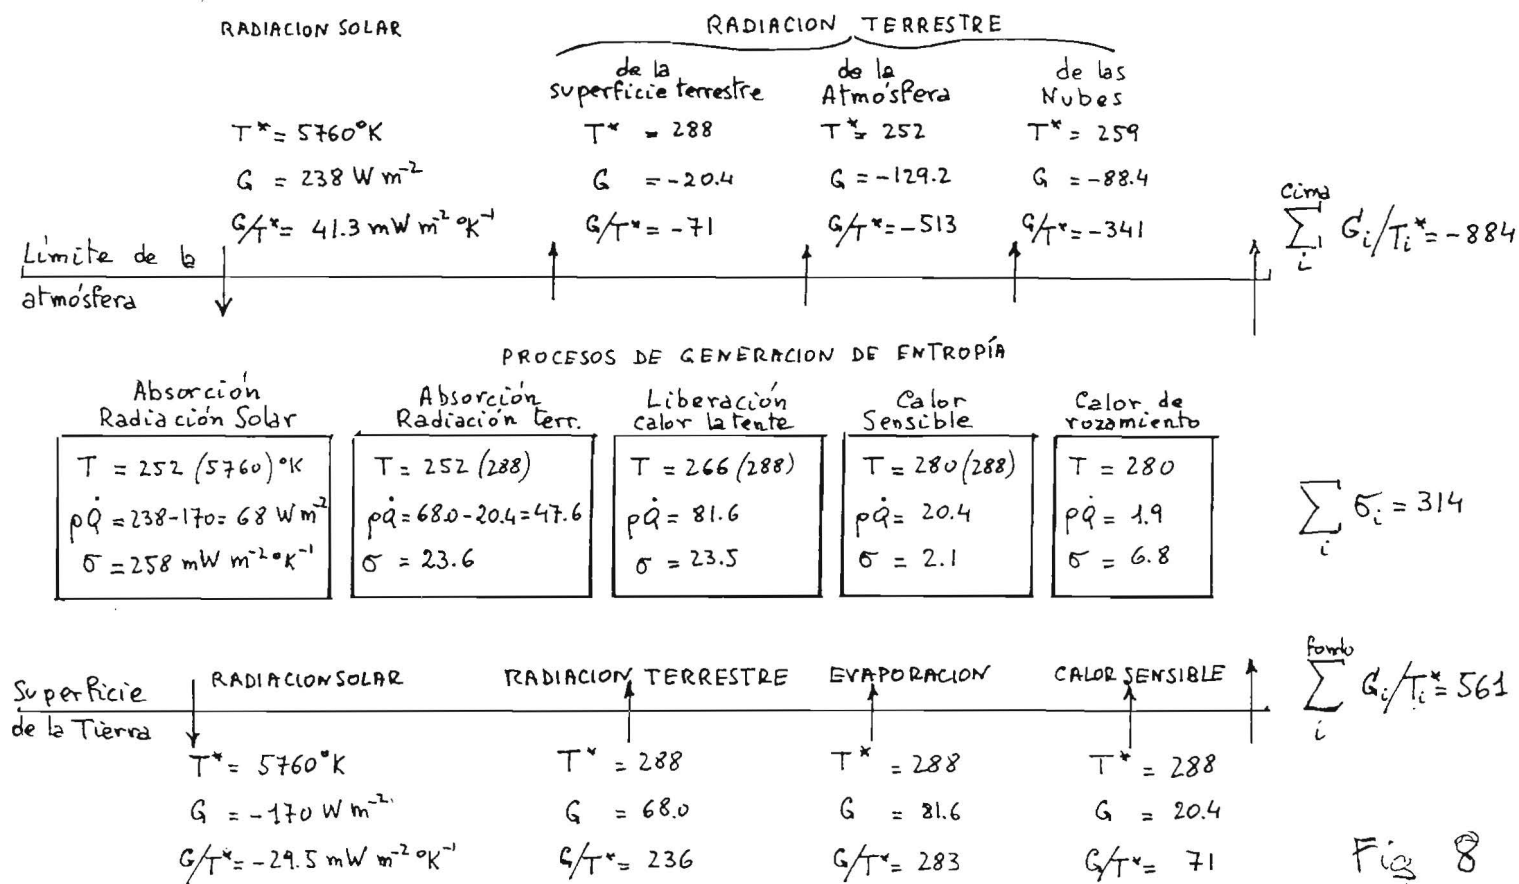 RADIACION SOLAR
RADIACION TERRESTRE
de la superficie terrestre
de la Atmósfera
de las Nubes
T* = 5760°K
G = 238 W m⁻²
G/T* = 41.3 mW m⁻² °K⁻¹
T* = 288
G = -20.4
G/T* = -71
T* = 252
G = -129.2
G/T* = -513
T* = 259
G = -88.4
G/T* = -341
Cima
∑ Gᵢ/Tᵢ* = -884
i
Límite de la
atmósfera
PROCESOS DE GENERACION DE ENTROPÍA
Absorción
Radiación Solar
T = 252 (5760) °K
ρQ̇ = 238-170 = 68 W m⁻²
σ = 258 mW m⁻² °K⁻¹
Absorción
Radiación terr.
T = 252 (288)
ρQ̇ = 68.0-20.4 = 47.6
σ = 23.6
Liberación
calor latente
T = 266 (288)
ρQ̇ = 81.6
σ = 23.5
Calor
Sensible
T = 280 (288)
ρQ̇ = 20.4
σ = 2.1
Calor de
rozamiento
T = 280
ρQ̇ = 1.9
σ = 6.8
∑ σᵢ = 314
i
Superficie
de la Tierra
RADIACION SOLAR
T* = 5760°K
G = -170 W m⁻²
G/T* = -29.5 mW m⁻² °K⁻¹
RADIACION TERRESTRE
T* = 288
G = 68.0
G/T* = 236
EVAPORACION
T* = 288
G = 81.6
G/T* = 283
CALOR SENSIBLE
T* = 288
G = 20.4
G/T* = 71
fondo
∑ Gᵢ/Tᵢ* = 561
i
Fig 8